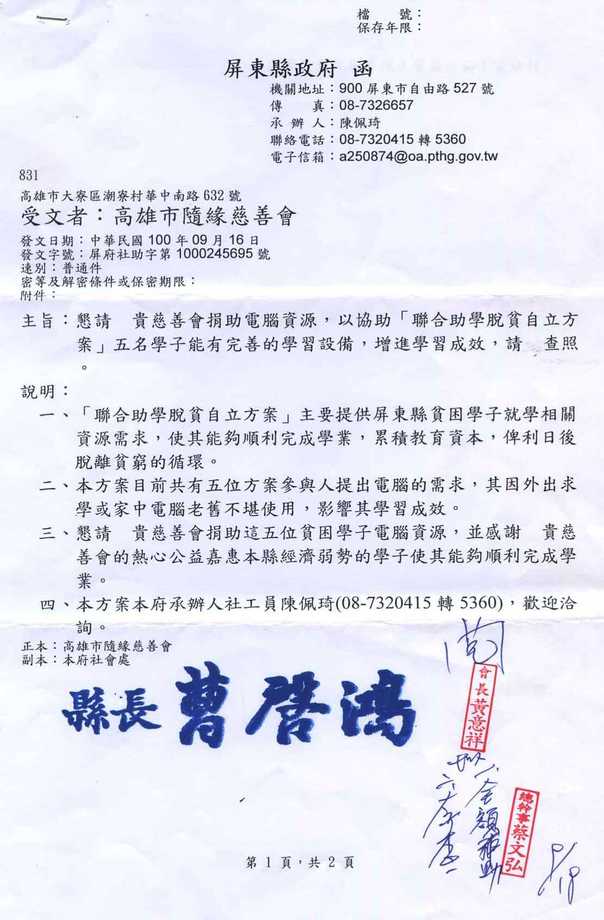 檔　　號：
保存年限：
屏東縣政府 函
機關地址：900 屏東市自由路 527 號
傳　　真：08-7326657
承 辦 人：陳佩琦
聯絡電話：08-7320415 轉 5360
電子信箱：a250874@oa.pthg.gov.tw
831
高雄市大寮區潮寮村華中南路 632 號
受文者：高雄市隨緣慈善會
發文日期：中華民國 100 年 09 月 16 日
發文字號：屏府社助字第 1000245695 號
速別：普通件
密等及解密條件或保密期限：
附件：
主旨：懇請　貴慈善會捐助電腦資源，以協助「聯合助學脫貧自立方
案」五名學子能有完善的學習設備，增進學習成效，請　查照
。
說明：
一、「聯合助學脫貧自立方案」主要提供屏東縣貧困學子就學相關
資源需求，使其能夠順利完成學業，累積教育資本，俾利日後
脫離貧窮的循環。
二、本方案目前共有五位方案參與人提出電腦的需求，其因外出求
學或家中電腦老舊不堪使用，影響其學習成效。
三、懇請　貴慈善會捐助這五位貧困學子電腦資源，並感謝　貴慈
善會的熱心公益嘉惠本縣經濟弱勢的學子使其能夠順利完成學
業。
四、本方案本府承辦人社工員陳佩琦(08-7320415 轉 5360)，歡迎洽
詢。
正本：高雄市隨緣慈善會
副本：本府社會處
縣長 曹啓鴻
會長 黃意祥
全額補助
總幹事 蔡文弘
9/18
第 1 頁，共 2 頁